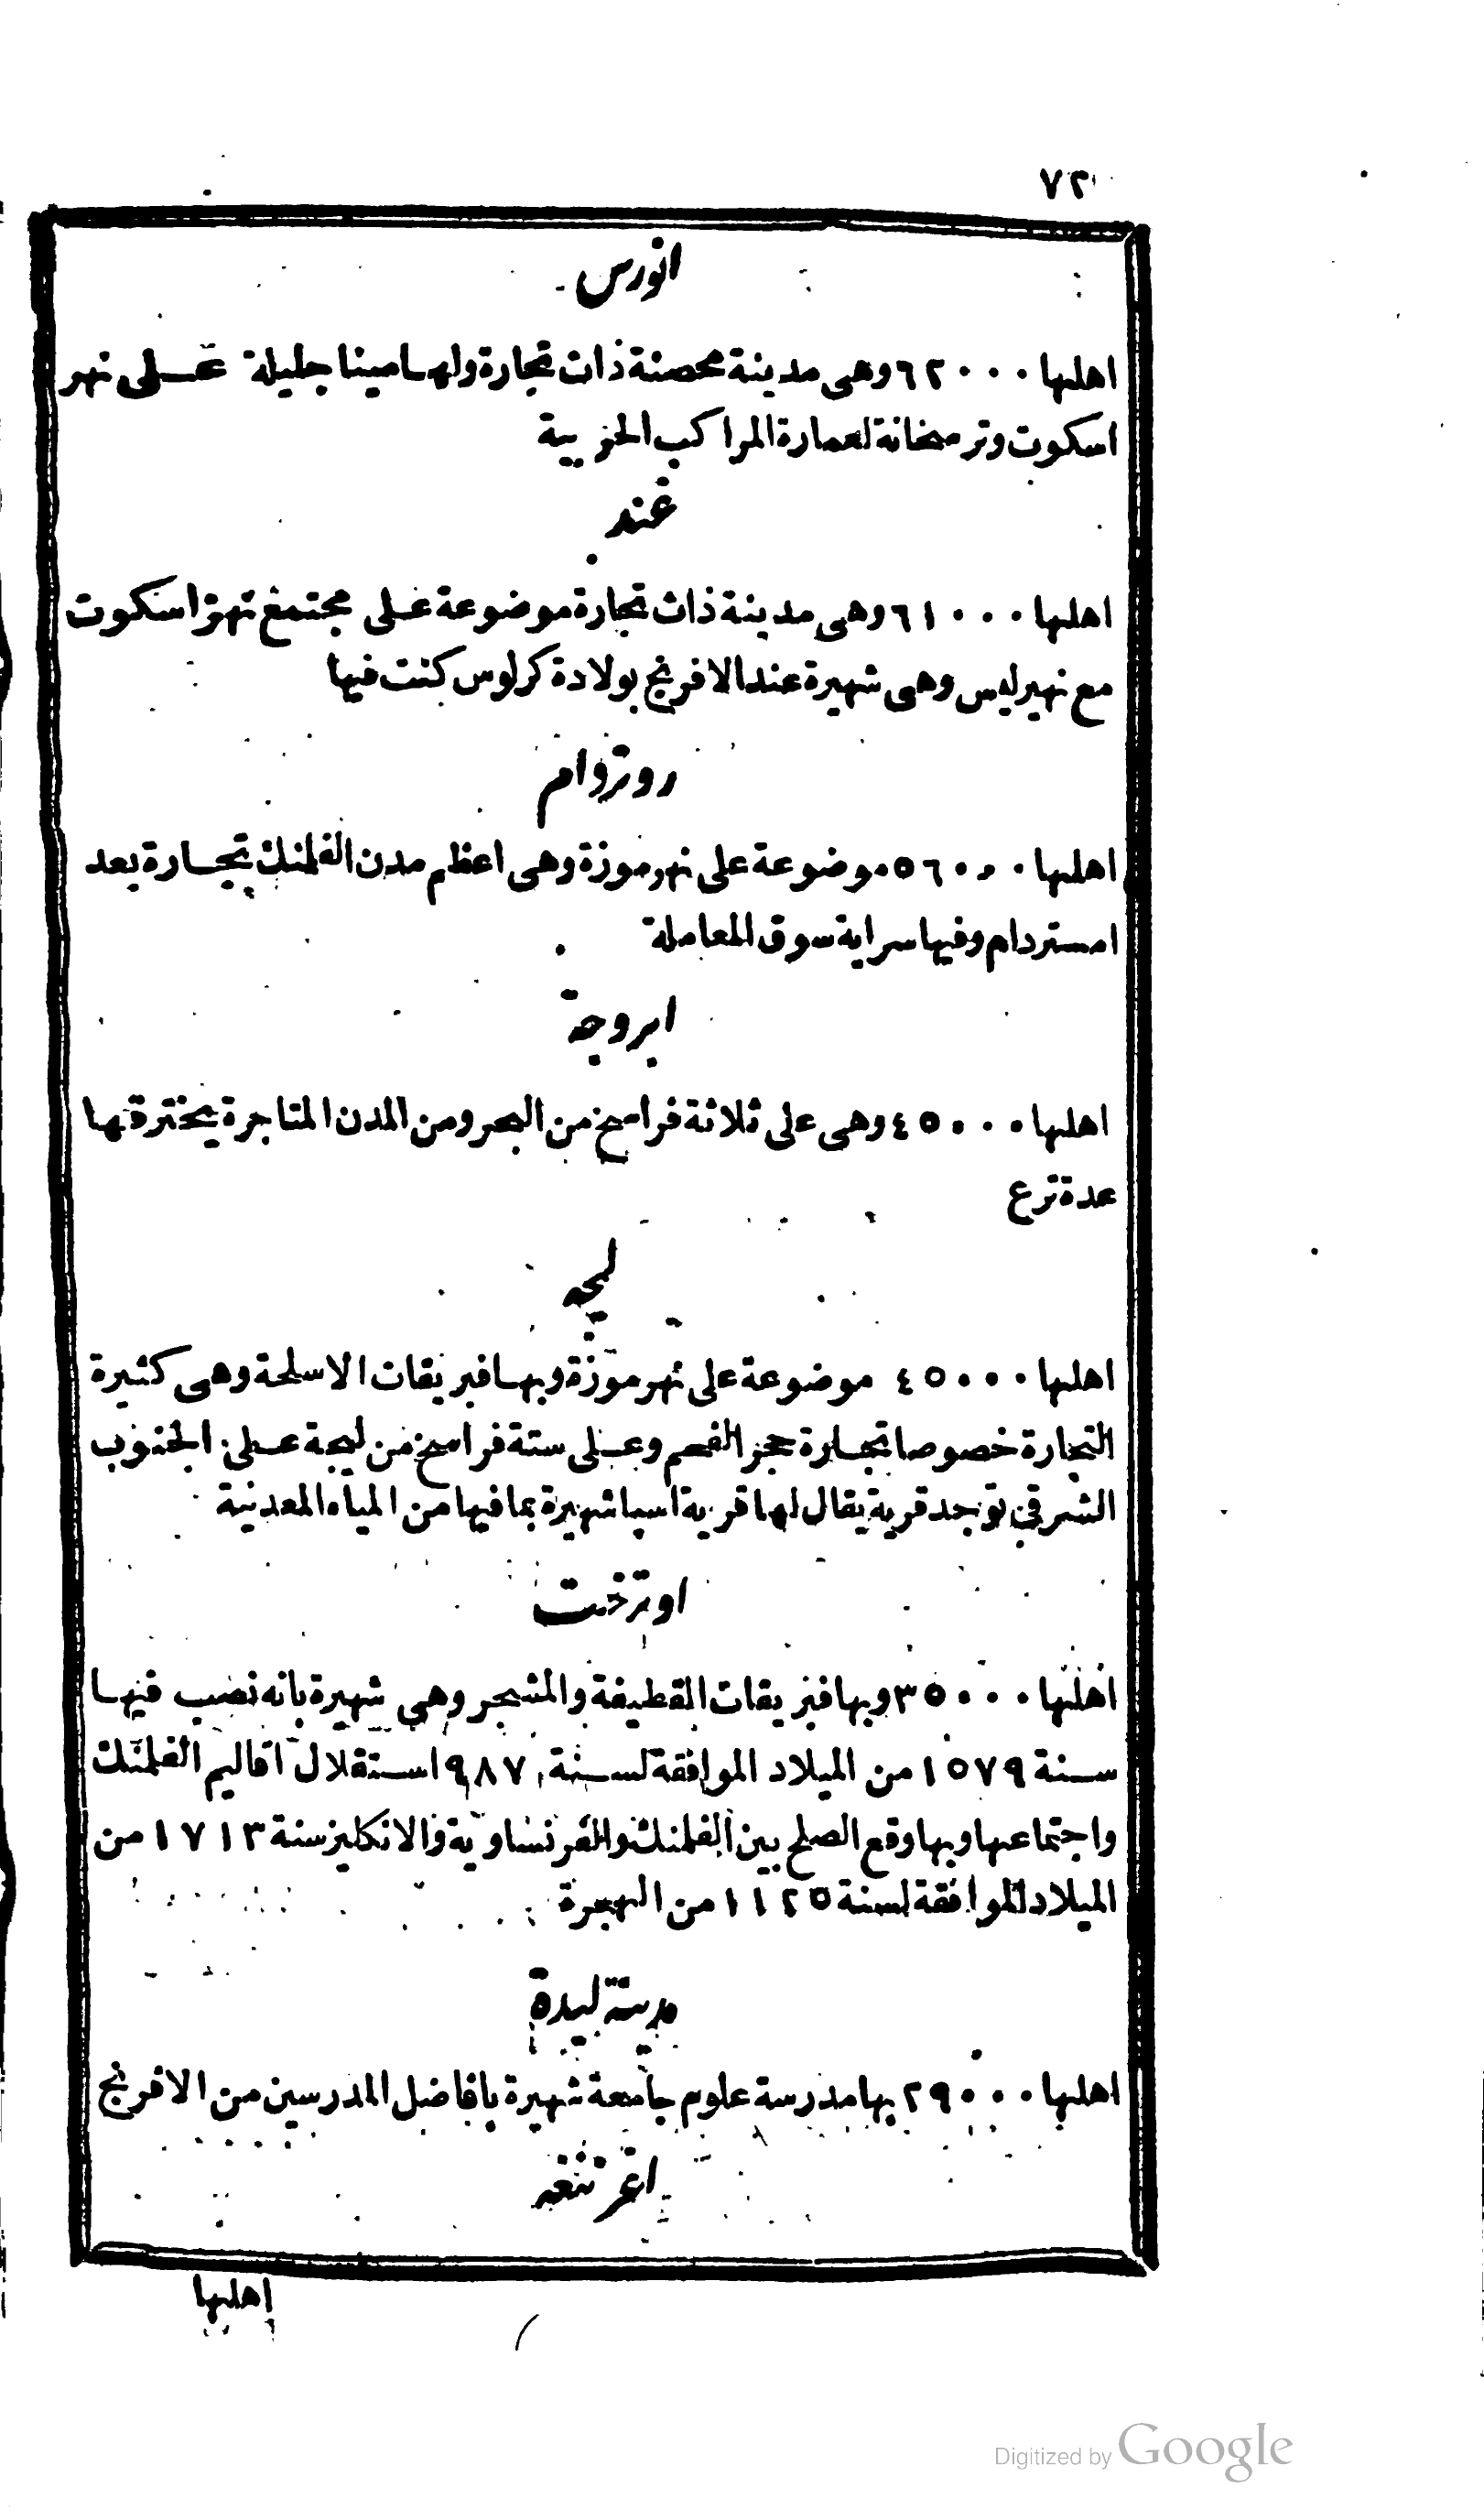 ٧٢
انورس
اهلها ٦٢٠٠٠ وهى مدينة محصنة ذات تجارة ولها مينا جليلة على نهر
اسكوت وترسخانة لعمارة المراكب الحربية
غند
اهلها ٦١٠٠٠ وهى مدينة ذات تجارة موضوعة على مجتمع نهر اسكوت
مع نهير ليس وهى شهيرة عند الافرنج بولادة كرلوس كنت فيها
روتردام
اهلها ٥٦٠٠٠ موضوعة على نهر موزة وهى اعظم مدن الفلمنك تجارة بعد
امستردام وفيها سراية سوق المعاملة
ابروجة
اهلها ٤٥٠٠٠ وهى على ثلاثة فراسخ من البحر ومن المدن المتاجرة يخترقها
عدة ترع
ليجه
اهلها ٤٥٠٠٠ موضوعة على نهر موزة وبها فبريقات الاسلحة وهى كثيرة
التجارة خصوصا تجارة حجر الفحم وعلى ستة فراسخ من ليجة على الجنوب
الشرقى توجد قرية يقال لها قرية اسبا شهيرة بما فيها من المياه المعدنية
اوترخت
اهلها ٣٥٠٠٠ وبها فبريقات القطيفة والمشجر وهى شهيرة بانه نصب فيها
سنة ١٥٧٩ من الميلاد الموافقة لسنة ٩٨٧ استقلال اقاليم الفلمنك
واجتماعها وبها وقع الصلح بين الفلمنك والفرنساوية والانكليز سنة ١٧١٣ من
الميلاد الموافقة لسنة ١١٢٥ من الهجرة
مدينة ليدة
اهلها ٢٩٠٠٠ بها مدرسة علوم جامعة شهيرة بافاضل المدرسين من الافرنج
اغرننغه
اهلها
Digitized by Google